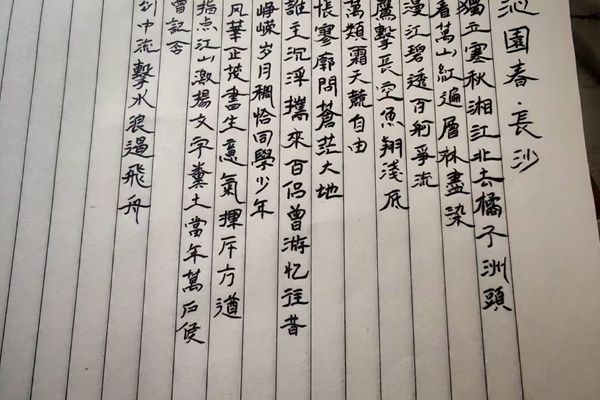 沁園春·長沙
獨立寒秋湘江北去橘子洲頭
看萬山紅遍層林盡染
漫江碧透百舸爭流
鷹擊長空魚翔淺底
萬類霜天競自由
悵寥廓問蒼茫大地
誰主沉浮攜來百侶曾游忆往昔
崢嶸岁月稠恰同學少年
风華正茂書生意氣揮斥方遒
指点江山激揚文字糞土當年萬户侯
曾記否
到中流擊水浪遏飛舟